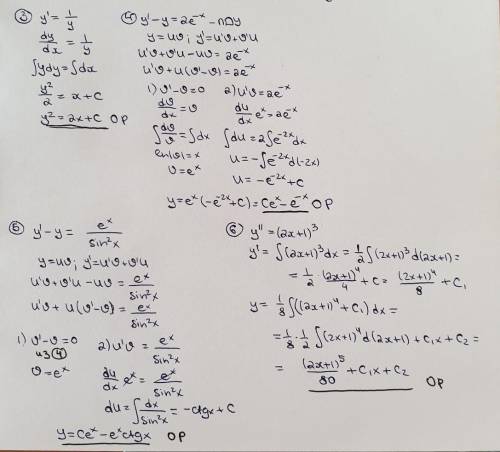 ③ y' = 1/y
dy/dx = 1/y
∫ydy = ∫dx
y²/2 = x + C
y² = 2x + C ОР
④ y' - y = 2e^-x - ЛДУ
y = uv; y' = u'v + v'u
u'v + v'u - uv = 2e^-x
u'v + u(v' - v) = 2e^-x
1) v' - v = 0
dv/dx = v
∫dv/v = ∫dx
ln|v| = x
v = e^x
2) u'v = 2e^-x
du/dx e^x = 2e^-x
∫du = 2∫e^-2x dx
u = -∫e^-2x d(-2x)
u = -e^-2x + C
y = e^x(-e^-2x + C) = Ce^x - e^-x ОР
⑤ y' - y = e^x/sin²x
y = uv; y' = u'v + v'u
u'v + v'u - uv = e^x/sin²x
u'v + u(v' - v) = e^x/sin²x
1) v' - v = 0
из ④
v = e^x
2) u'v = e^x/sin²x
du/dx e^x = e^x/sin²x
du = ∫dx/sin²x = -ctgx + C
y = Ce^x - e^x ctgx ОР
⑥ y'' = (2x+1)³
y' = ∫(2x+1)³dx = 1/2 ∫(2x+1)³d(2x+1) =
= 1/2 · (2x+1)⁴/4 + C = (2x+1)⁴/8 + C₁
y = 1/8 ∫((2x+1)⁴ + C₁)dx =
= 1/8 · 1/2 ∫(2x+1)⁴d(2x+1) + C₁x + C₂ =
= (2x+1)⁵/80 + C₁x + C₂ ОР